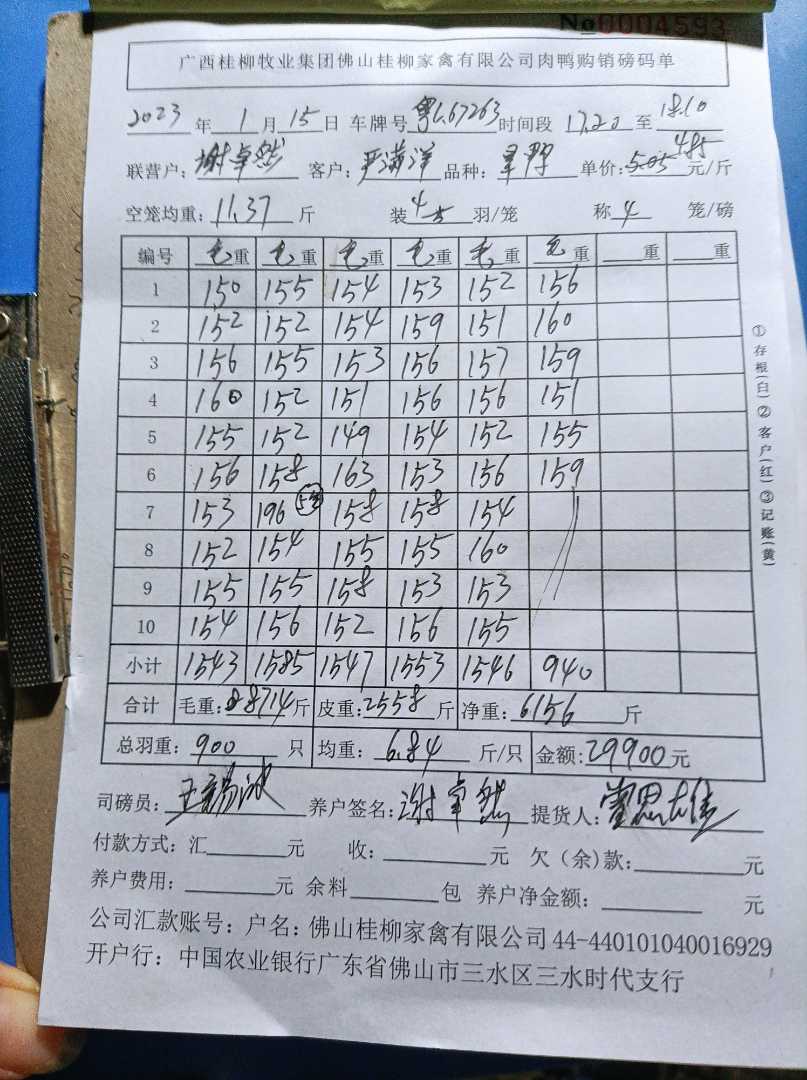 №0004593
广西桂柳牧业集团佛山桂柳家禽有限公司肉鸭购销磅码单
2023 年 1 月 15 日 车牌号 粤L67263 时间段 17.20 至 18.10
联营户: 谢卓然 客户: 严满洋 品种: 单价: 5.05 4.85 元/斤
空笼均重: 11.37 斤 装 4/5 羽/笼 称 4 笼/磅
编号 毛重 毛重 毛重 毛重 毛重 毛重 重 重
1 150 155 154 153 152 156
2 152 152 154 159 151 160
3 156 155 153 156 157 159
4 160 152 151 156 156 151
5 155 152 149 154 152 155
6 156 158 163 153 156 159
7 153 196 158 158 154
8 152 154 155 155 160
9 155 155 158 153 153
10 154 156 152 156 155
小计 1543 1585 1547 1553 1546 940
合计 毛重: 8714 斤 皮重: 2558 斤 净重: 6156 斤
总羽重: 900 只 均重: 6.84 斤/只 金额: 29900 元
司磅员: 养户签名: 谢卓然 提货人:
付款方式: 汇 元 收: 元 欠(余)款: 元
养户费用: 元 余料 包 养户净金额: 元
公司汇款账号: 户名: 佛山桂柳家禽有限公司 44-440101040016929
开户行: 中国农业银行广东省佛山市三水区三水时代支行
①存根(白)②客户(红)③记账(黄)